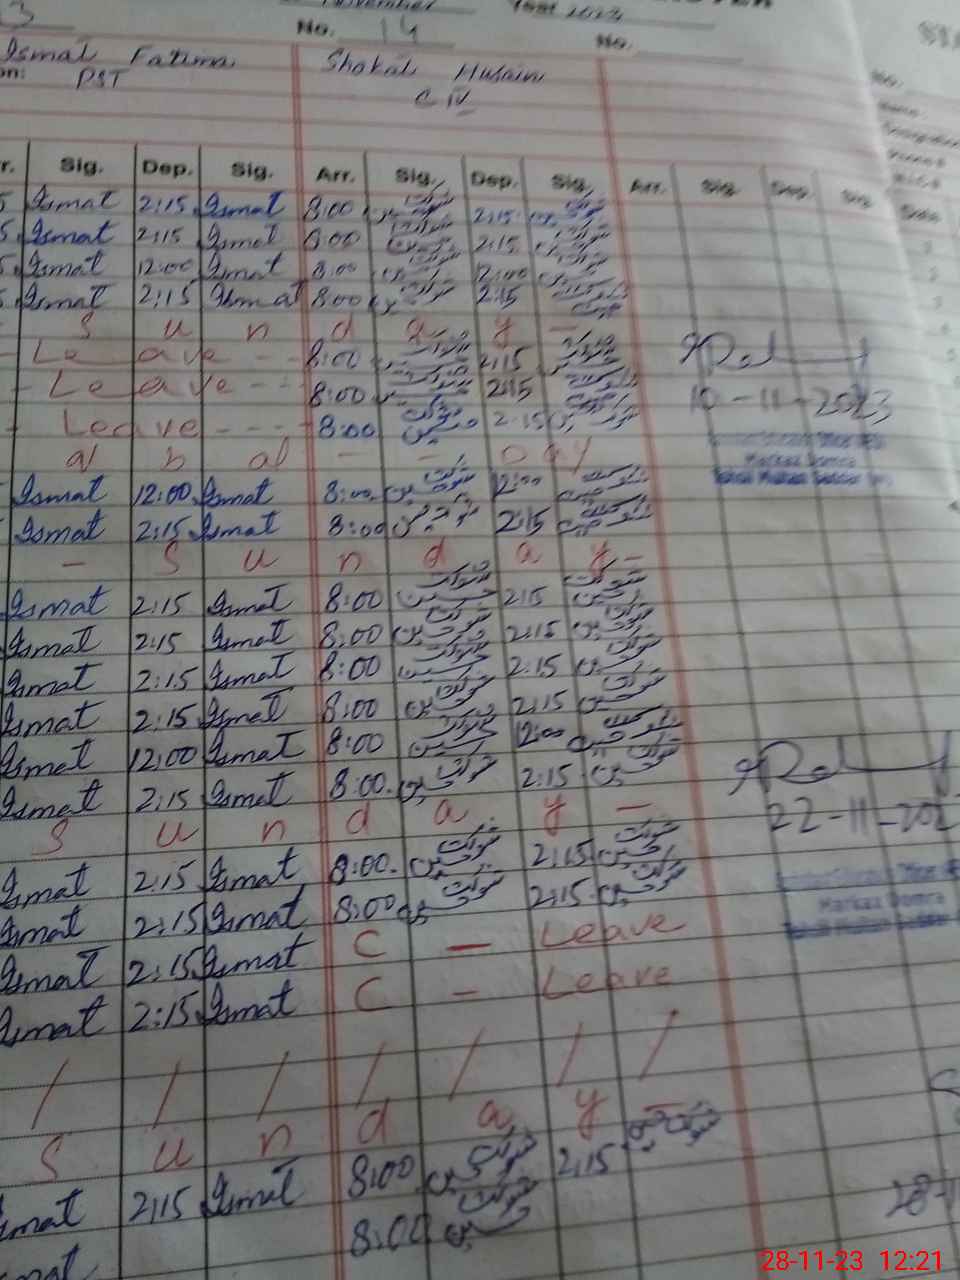 3 November Year 2023
No. 14 No.
Ismat Fatima Shokat Husain
on: PST C IV
r. Sig. Dep. Sig. Arr. Sig. Dep. Sig. Arr. Sig. Dep. Sig. Date
5 Ismat 2:15 Ismat 8:00 شوکت حسین 2:15 شوکت حسین
5. Ismat 2:15 Ismat 8:00 شوکت حسین 2:15 شوکت حسین
5. Ismat 12:00 Ismat 8:00 شوکت حسین 12:00 شوکت حسین
5. Ismat 2:15 Ismat 8:00 شوکت حسین 2:15 شوکت حسین
S u n d a y -
- Leave - - 8:00 شوکت حسین 2:15 شوکت حسین
- Leave - - 8:00 شوکت حسین 2:15 شوکت حسین 10-11-2023
- Leave - - - 8:00 شوکت حسین 2:15 شوکت حسین
Markaz Domra
Ismat 12:00 Ismat 8:00 شوکت حسین 12:00 شوکت حسین
Ismat 2:15 Ismat 8:00 شوکت حسین 2:15 شوکت حسین
- S u n d a y -
Ismat 2:15 Ismat 8:00 شوکت حسین 2:15 شوکت حسین
Ismat 2:15 Ismat 8:00 شوکت حسین 2:15 شوکت حسین
Ismat 2:15 Ismat 8:00 شوکت حسین 2:15 شوکت حسین
Ismat 2:15 Ismat 8:00 شوکت حسین 2:15 شوکت حسین
Ismat 12:00 Ismat 8:00 شوکت حسین 12:00 شوکت حسین
Ismat 2:15 Ismat 8:00 شوکت حسین 2:15 شوکت حسین
S u n d a y - 22-11-202
Ismat 2:15 Ismat 8:00 شوکت حسین 2:15 شوکت حسین
Ismat 2:15 Ismat 8:00 شوکت حسین 2:15 شوکت حسین Markaz Domra
Ismat 2:15 Ismat C - Leave
Ismat 2:15 Ismat C - Leave
/ / / / / / /
S u n d a y -
smat 2:15 Ismat 8:00 شوکت حسین 2:15 شوکت حسین
mat 8:00 شوکت حسین
28-11-23 12:21